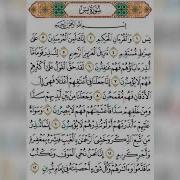 سُورَةُ يسٓ
بِسْمِ اللَّهِ الرَّحْمَٰنِ الرَّحِيمِ
يسٓ ۝١ وَالْقُرْءَانِ الْحَكِيمِ ۝٢ إِنَّكَ لَمِنَ الْمُرْسَلِينَ ۝٣ عَلَىٰ
صِرَٰطٍ مُّسْتَقِيمٍ ۝٤ تَنزِيلَ الْعَزِيزِ الرَّحِيمِ ۝٥ لِتُنذِرَ قَوْمًا مَّآ
أُنذِرَ ءَابَآؤُهُمْ فَهُمْ غَٰفِلُونَ ۝٦ لَقَدْ حَقَّ الْقَوْلُ عَلَىٰٓ أَكْثَرِهِمْ
فَهُمْ لَا يُؤْمِنُونَ ۝٧ إِنَّا جَعَلْنَا فِىٓ أَعْنَٰقِهِمْ أَغْلَٰلًا فَهِىَ إِلَى
الْأَذْقَانِ فَهُم مُّقْمَحُونَ ۝٨ وَجَعَلْنَا مِنۢ بَيْنِ أَيْدِيهِمْ سَدًّا
وَمِنْ خَلْفِهِمْ سَدًّا فَأَغْشَيْنَٰهُمْ فَهُمْ لَا يُبْصِرُونَ ۝٩ وَسَوَآءٌ
عَلَيْهِمْ ءَأَنذَرْتَهُمْ أَمْ لَمْ تُنذِرْهُمْ لَا يُؤْمِنُونَ ۝١٠ إِنَّمَا تُنذِرُ
مَنِ اتَّبَعَ الذِّكْرَ وَخَشِىَ الرَّحْمَٰنَ بِالْغَيْبِ فَبَشِّرْهُ بِمَغْفِرَةٍ
وَأَجْرٍ كَرِيمٍ ۝١١ إِنَّا نَحْنُ نُحْىِ الْمَوْتَىٰ وَنَكْتُبُ مَا
قَدَّمُوا۟ وَءَاثَٰرَهُمْ وَكُلَّ شَىْءٍ أَحْصَيْنَٰهُ فِىٓ إِمَامٍ مُّبِينٍ ۝١٢